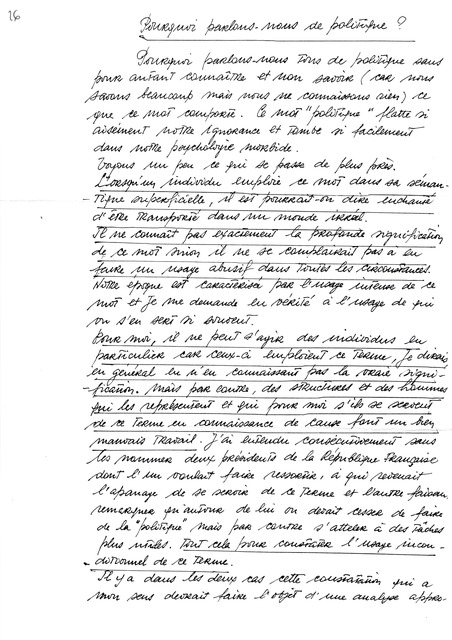 26
Pourquoi parlons-nous de politique ?
Pourquoi parlons-nous tous de politique sans
pour autant connaître et non savoir (car nous
savons beaucoup mais nous ne connaissons rien) ce
que ce mot comporte. Ce mot "politique" flatte si
aisément notre ignorance et tombe si facilement
dans notre psychologie morbide.
Voyons un peu ce qui se passe de plus près.
Lorsqu'un individu emploie ce mot dans sa séman-
tique superficielle, il est pourrait-on dire enchanté
d'être transporté dans un monde irréel.
Il ne connait pas exactement la profonde signification
de ce mot sinon il ne se complairait pas à en
faire un usage abusif dans toutes les circonstances.
Notre époque est caractérisée par l'usage intense de ce
mot et je me demande en vérité à l'usage de qui
on s'en sert si souvent.
Pour moi, il ne peut s'agir des individus en
particulier car ceux-ci emploient ce terme, je dirais
en général en n'en connaissant pas la vraie signi-
fication. Mais par contre, des structures et des hommes
qui les représentent et qui pour moi s'ils se servent
de ce terme en connaissance de cause font un bien
mauvais travail. J'ai entendu consécutivement sans
les nommer deux présidents de la République Française
dont l'un voulait faire ressortir à qui revenait
l'apanage de se servir de ce terme et l'autre faisait
remarquer qu'autour de lui on devait cesser de faire
de la "politique" mais par contre s'atteler à des tâches
plus utiles. Tout cela pour constater l'usage incon-
ditionnel de ce terme.
Il y a dans les deux cas cette constatation qui a
mon sens devrait faire l'objet d'une analyse appro-